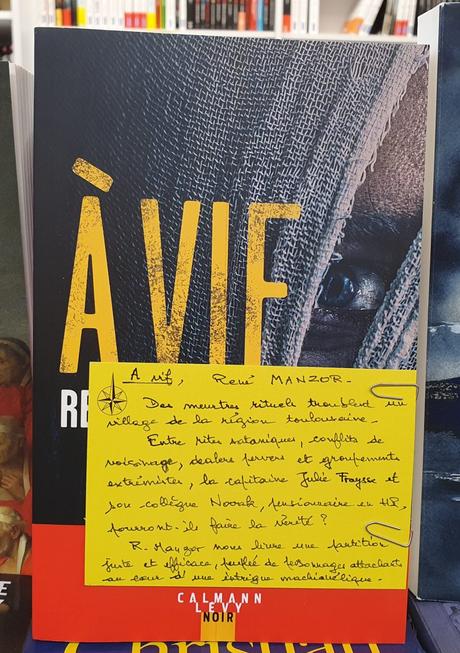 À VIF
RE
A vif, René MANZOR -
Des meurtres rituels troublent un
village de la région toulousaine -
Entre rites sataniques, conflits de
voisinage, dealers pervers et groupements
extrémistes, la capitaine Julie Fraysse et
son collègue Novak, pensionnaire en HP,
pourront-ils faire la vérité ?
R. Manzor nous livre une partition
juste et efficace, de personnages attachants
au cœur d'une intrigue machiavélique -
CALMANN
LEVY
NOIR
Christian